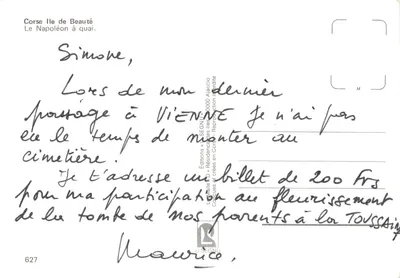 Corse Ile de Beauté
Le Napoléon à quai.
Simone,
Lors de mon dernier
passage à VIENNE Je n'ai pas
eu le temps de monter au
cimetière.
Je t'adresse un billet de 200 Frs
pour ma participation au fleurissement
de la tombe de nos parents à la TOUSSAINT
Maurice.
627